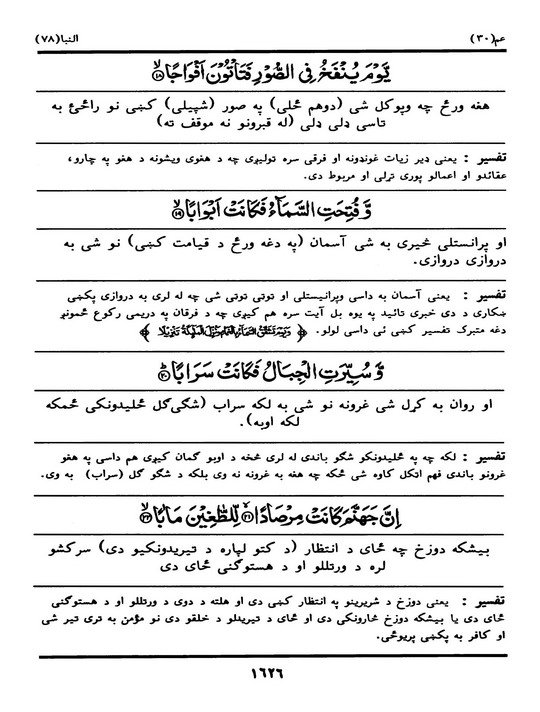 عم(۳۰)
النبا(۷۸)
يَّوْمَ يُنْفَخُ فِي الصُّوْرِ فَتَاْتُوْنَ اَفْوَاجًا ۱۸
هغه ورځ چه وپوکل شي (دوهم ځلي) په صور (شپيلی) کښی نو راځئ به
تاسی ډلی ډلی (له قبرونو نه موقف ته)
تفسير : يعنی ډير زيات غونډونه او فرقی سره توليږی چه د هغوی ويشونه د هغو په چارو،
عقائدو او اعمالو پوری تړلی او مربوط دی.
وَّ فُتِحَتِ السَّمَآءُ فَكَانَتْ اَبْوَابًا ۱۹
او پرانستلی څيری به شی آسمان (په دغه ورځ د قيامت کښی) نو شی به
دروازی دروازی.
تفسير : يعنی آسمان به داسی وپرانيستلی او توتی توتی شی چه له لری به دروازی پکښی
ښکاری د دی خبری تائيد په يوه بل آيت سره هم کيږی چه د فرقان په دريمی رکوع ځمونږ
دغه متبرک تفسير کښی ئی داسی لولو.
وَّ سُيِّرَتِ الْجِبَالُ فَكَانَتْ سَرَابًا ۲۰
او روان به کړل شی غرونه نو شی به لکه سراب (شګی ګل ځليدونکی څمکه
لکه اوبه).
تفسير : لکه چه په ځليدونکو شګو باندی له لری څخه د اوبو ګمان کيږی هم داسی په هغو
غرونو باندی فهم اټکل کاوه شی ځکه چه هغه به غرونه نه وی بلکه د شګو ګل (سراب) به وی.
اِنَّ جَهَنَّمَ كَانَتْ مِرْصَادًا ۲۱ لِّلطّٰغِيْنَ مَاٰبًا ۲۲
بيشکه دوزخ چه ځای د انتظار (د کتو لپاره د تيريدونکيو دی) سرکشو
لره د ورتللو او د هستوګنی ځای دی
تفسير : يعنی دوزخ د شريرينو په انتظار کښی دی او هلته د دوی د ورتللو او د هستوګنی
ځای دی يا بيشکه دوزخ څارونکی دی او ځای د تيريدلو د خلقو دی نو مؤمن به تری تير شی
او کافر به پکښی پريوځی.
۱۶۲۶